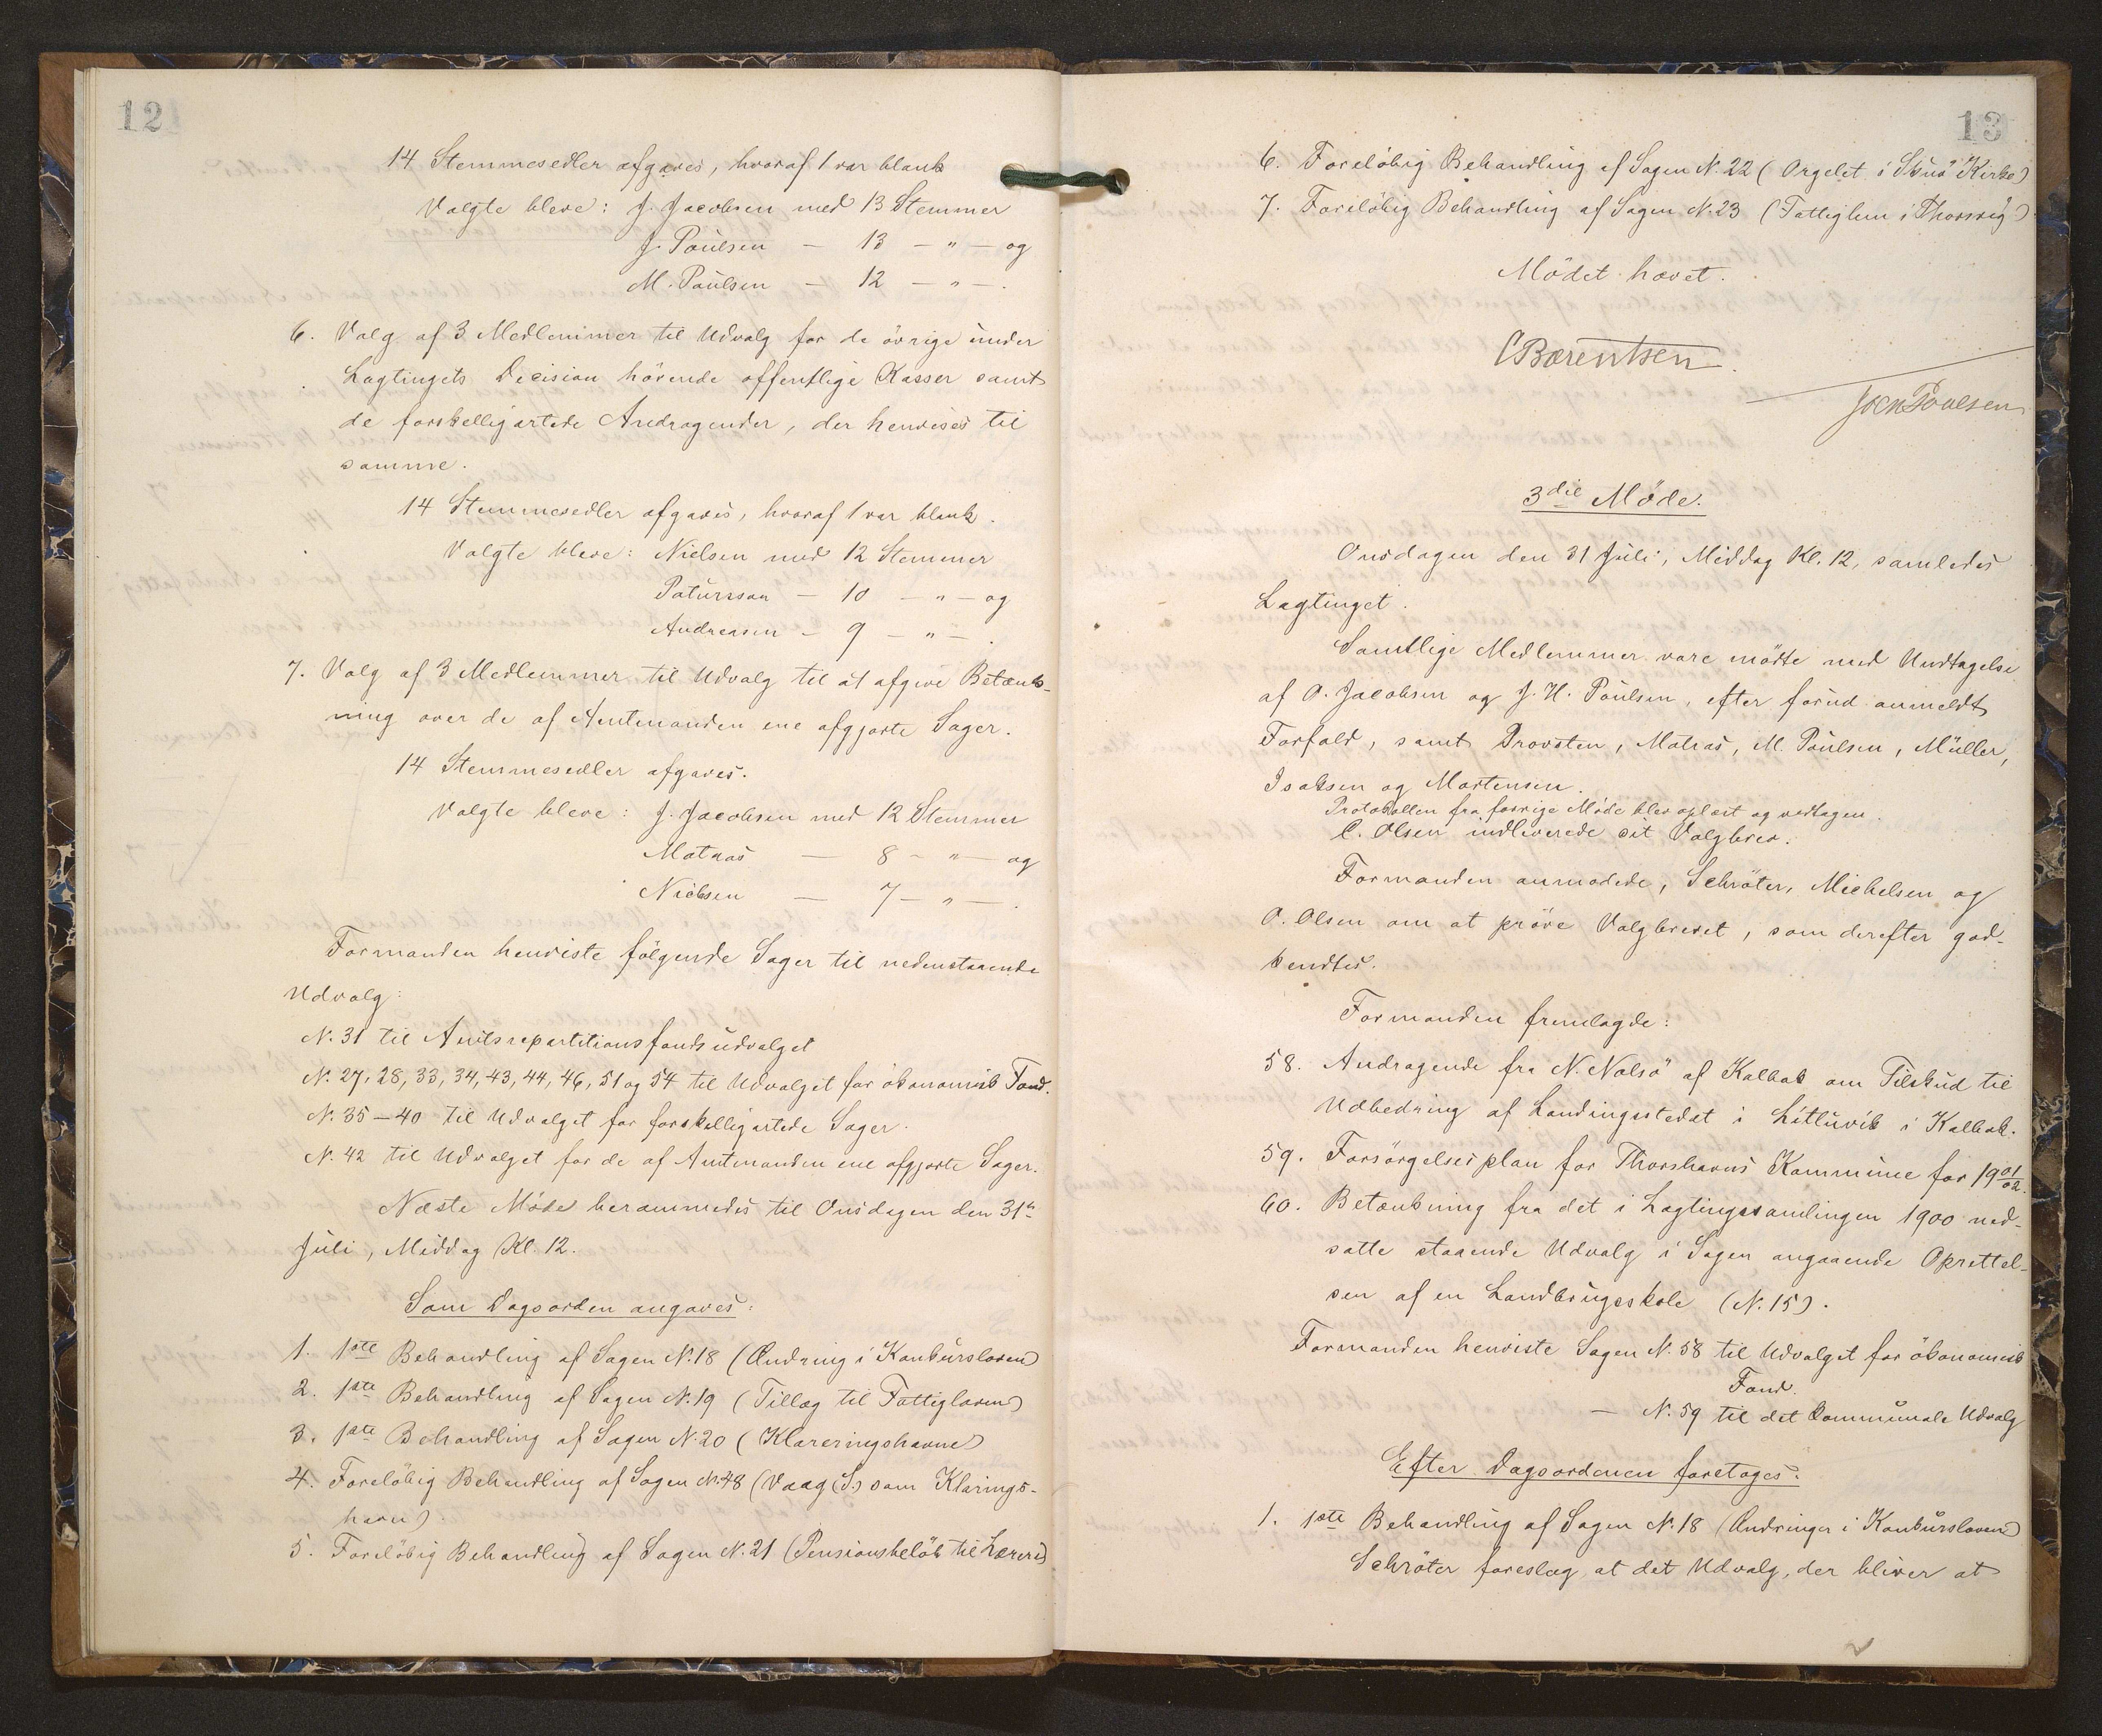 12
14 Stemmesedler afgaves, hvoraf 1 var blank
Valgte bleve: J. Jacobsen med 13 Stemmer
J. Poulsen — 13 — " — og
M. Poulsen — 12 — " — .
6. Valg af 3 Medlemmer til Udvalg for de övrige under
Lagtingets Decision hörende offentlige Kasser samt
de forskelligartede Andragender, der henvises til
samme.
14 Stemmesedler afgaves, hvoraf 1 var blank.
Valgte bleve: Nielsen med 12 Stemmer
Patursson — 10 — " — og
Andreasen — 9 — " — .
7. Valg af 3 Medlemmer til Udvalg til at afgive Betænk-
ning over de af Amtmanden ene afgjorte Sager.
14 Stemmesedler afgaves.
Valgte bleve: J. Jacobsen med 12 Stemmer
Matras — 8 — " — og
Nielsen — 7 — " — .
Formanden henviste følgende Sager til nedenstaaende
Udvalg:
N. 31 til Amtsrepartitionsfondsudvalget
N. 27, 28, 33, 34, 43, 44, 46, 51 og 54 til Udvalget for ökonomisk Fond.
N. 35—40 til Udvalget for forskelligartede Sager.
N. 42 til Udvalget for de af Amtmanden ene afgjorte Sager.
Næste Möde berammedes til Onsdagen den 31te
Juli, Middag Kl. 12.
Som Dagsorden angaves:
1. 1ste Behandling af Sagen N. 18 (Ændring i Konkursloven)
2. 1ste Behandling af Sagen N. 19 (Tillæg til Fattigloven)
3. 1ste Behandling af Sagen N. 20 (Klareringshavne)
4. Foreløbig Behandling af Sagen N. 48 (Vaag (S.) som Klarings-
havn).
5. Foreløbig Behandling af Sagen N. 21 (Pensionsbeløb til Lærere)
13
6. Foreløbig Behandling af Sagen N. 22 (Orgelet i Skuö Kirke)
7. Foreløbig Behandling af Sagen N. 23 (Fattiglem i Thorsvig)
Mödet hævet.
CBærentsen.
Joen Poulsen
3die Möde.
Onsdagen den 31 Juli, Middag Kl. 12, samledes
Lagtinget.
Samtlige Medlemmer vare mödte med Undtagelse
af O. Jacobsen og J. H. Poulsen, efter forud anmeldt
Forfald, samt Provsten, Matras, M. Poulsen, Müller,
Isaksen og Mortensen.
Protokollen fra forrige Møde blev oplæst og vedtagen.
C. Olsen indleverede sit Valgbrev.
Formanden anmodede, Schröter, Michelsen og
O. Olsen om at pröve Valgbrevet, som derefter god-
kendtes.
Formanden fremlagde:
58. Andragende fra N. Nolsö af Kalbak om Tilskud til
Udbedring af Landingsstedet i Litluvik i Kalbak.
59. Forsørgelsesplan for Thorshavns Kommune for 1901/02.
60. Betænkning fra det i Lagtingssamlingen 1900 ned-
satte staaende Udvalg i Sagen angaaende Oprettel-
sen af en Landbrugsskole (N. 15).
Formanden henviste Sagen N. 58 til Udvalget for ökonomisk
Fond.
— N. 59 til det kommunale Udvalg
Efter Dagsordenen foretages:
1. 1ste Behandling af Sagen N. 18 (Ændringer i Konkursloven)
Schröter foreslog, at det Udvalg, der bliver at